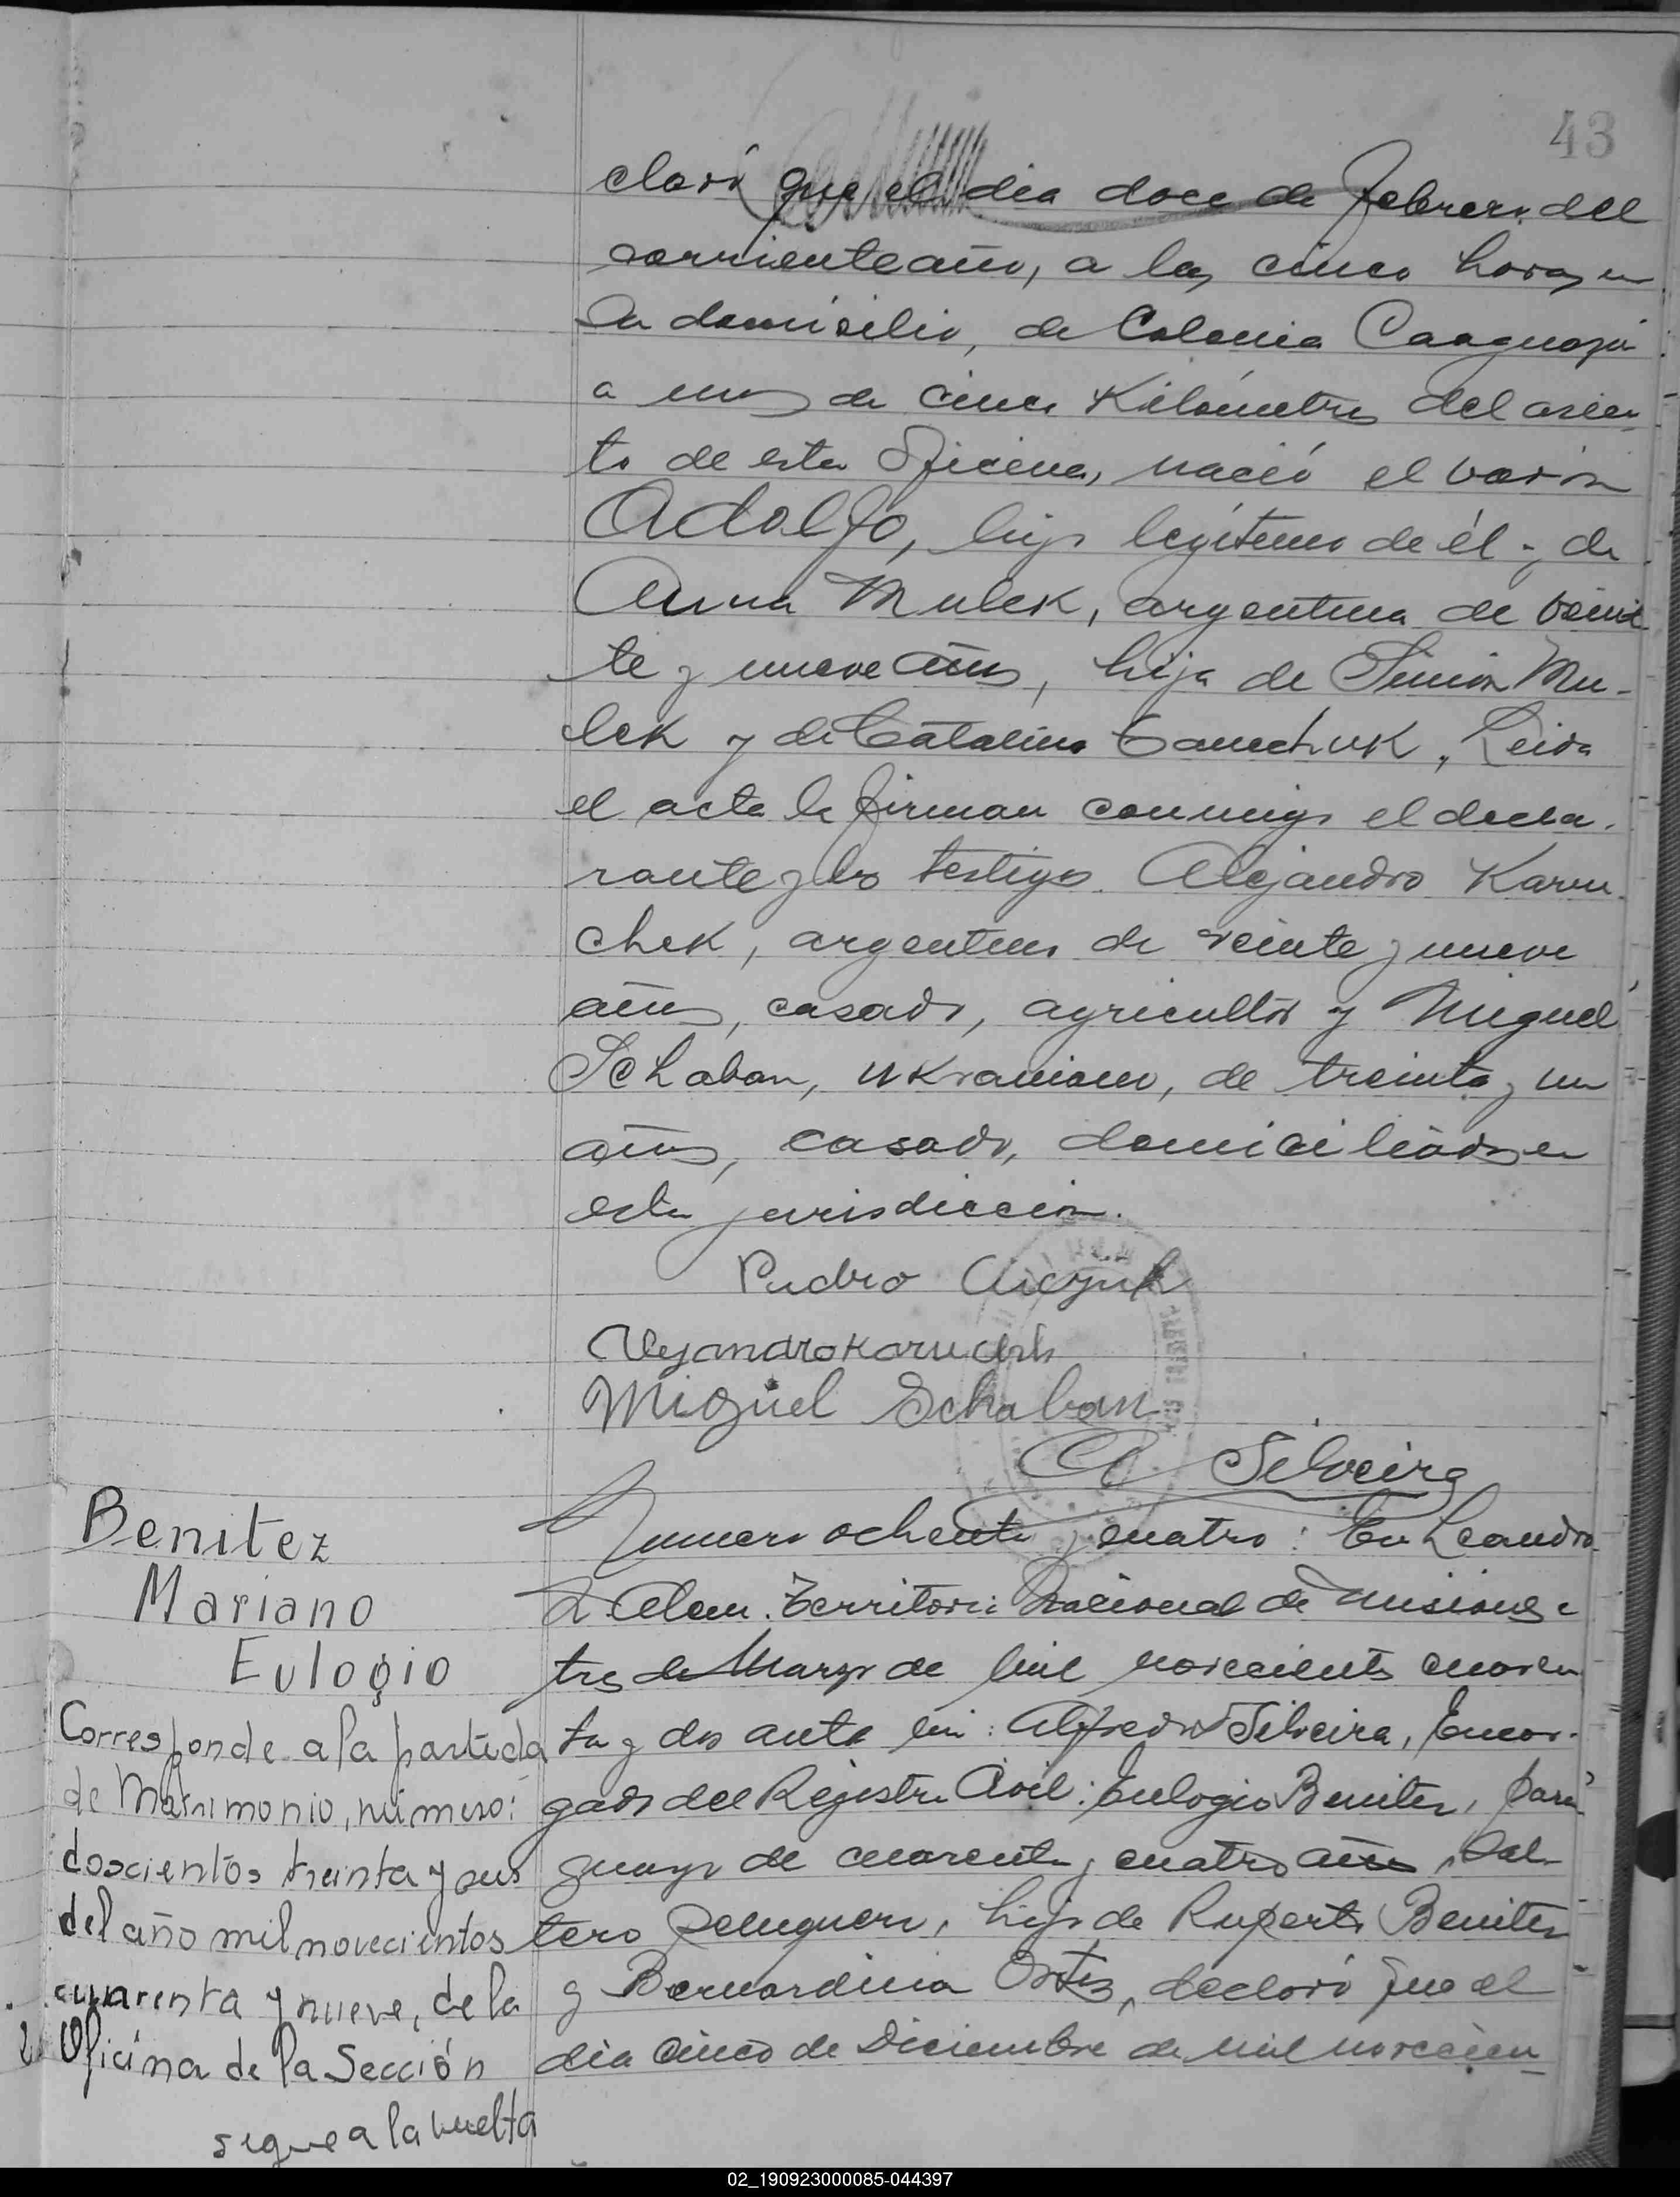 43
claró que el dia doce de Febrero del
corriente año, a las cinco horas en
su domicilio, de Colonia Caaguazú
a unos de cinco Kilómetros del asien
to de esta Oficina, nació el varón
Adolfo, hijo legítimo de él y de
Anna Mulek, argentina de vein
te y nueve años, hija de Simón Mu-
lek y de Catalina Tamchuk. Leida
el acta la firman conmigo el decla-
rante y los testigos Alejandro Karu
chek, argentino de veinte y nueve
años, casado, agricultor y Miguel
Schaban, ukraniano, de treinta y un
años, casado, domiciliados en
esta jurisdiccion.
Pedro
Alejandro Karuchek
Miguel Schaban
A Silveira
Benitez
Mariano
Eulogio
Corresponde a la partida
de Matrimonio, número:
doscientos treinta y seis
del año mil novecientos
cuarenta y nueve, de la
Oficina de la Sección
sigue a la vuelta
Numero ochenta y cuatro: En Leandro
N. Alem. Territorio Nacional de Misiones a
tres de Marzo de mil novecientos cuaren
ta y dos ante mi: Alfredo Silveira, Encar-
gado del Rejistro Civil: Eulogio Benitez, para
guayo de cuarenta y cuatro años, sol-
tero peluquero, hijo de Ruperto Benitez
y Bernardina Ortiz, declaró que el
dia cinco de Diciembre de mil novecien
02_190923000085-044397